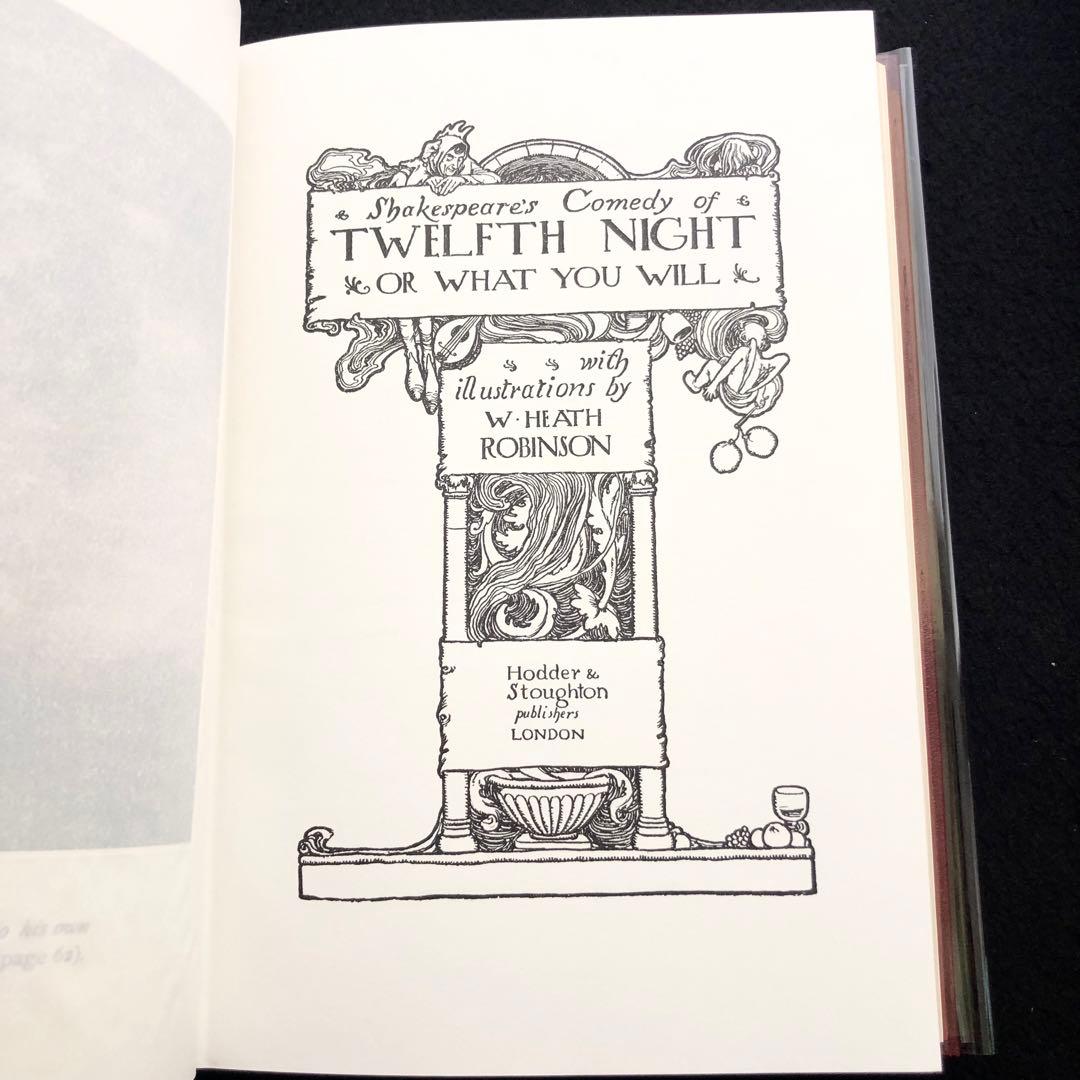 Shakespeare's Comedy of
TWELFTH NIGHT
OR WHAT YOU WILL
with
illustrations by
W · HEATH
ROBINSON
Hodder &
Stoughton
publishers
LONDON
his own
page 62).